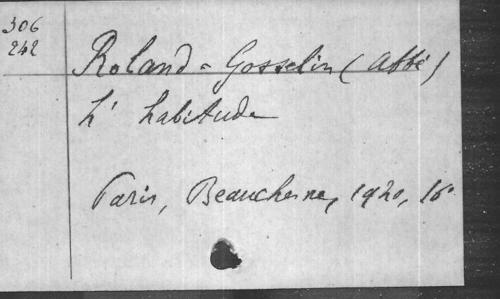 306
242
Roland-Gosselin (Abbé)
L'habitude
Paris, Beauchesne, 1920, 16°